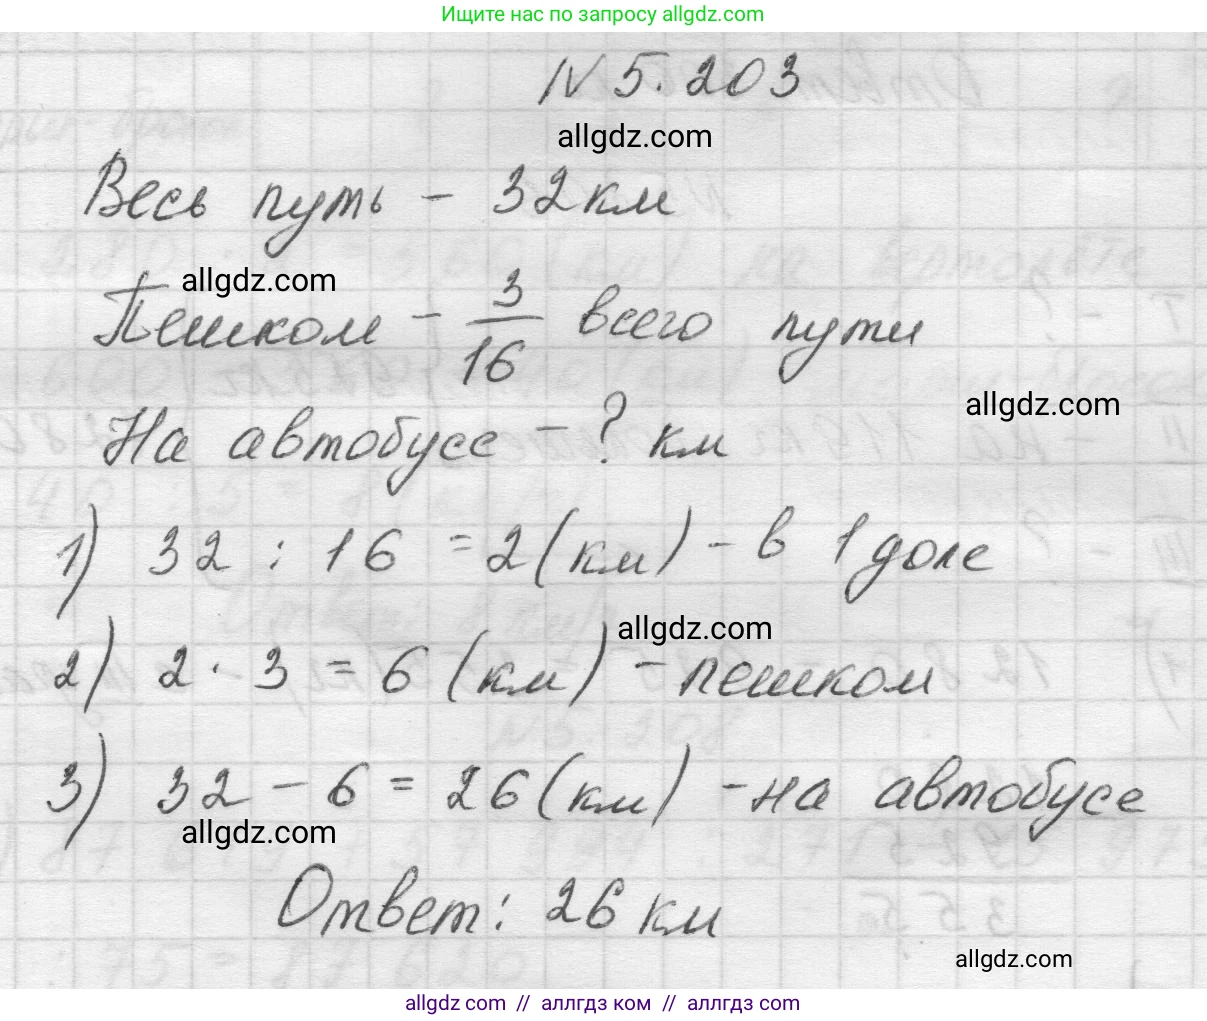 Ищите нас по запросу allgdz.com
N 5.203
allgdz.com
Весь путь - 32 км
allgdz.com
Пешком - 3/16 всего пути
allgdz.com
На автобусе - ? км
1) 32 : 16 = 2 (км) - в 1 доле
allgdz.com
2) 2 · 3 = 6 (км) - пешком
3) 32 - 6 = 26 (км) - на автобусе
allgdz.com
Ответ: 26 км
allgdz.com
allgdz com // аллгдз ком // аллгдз com